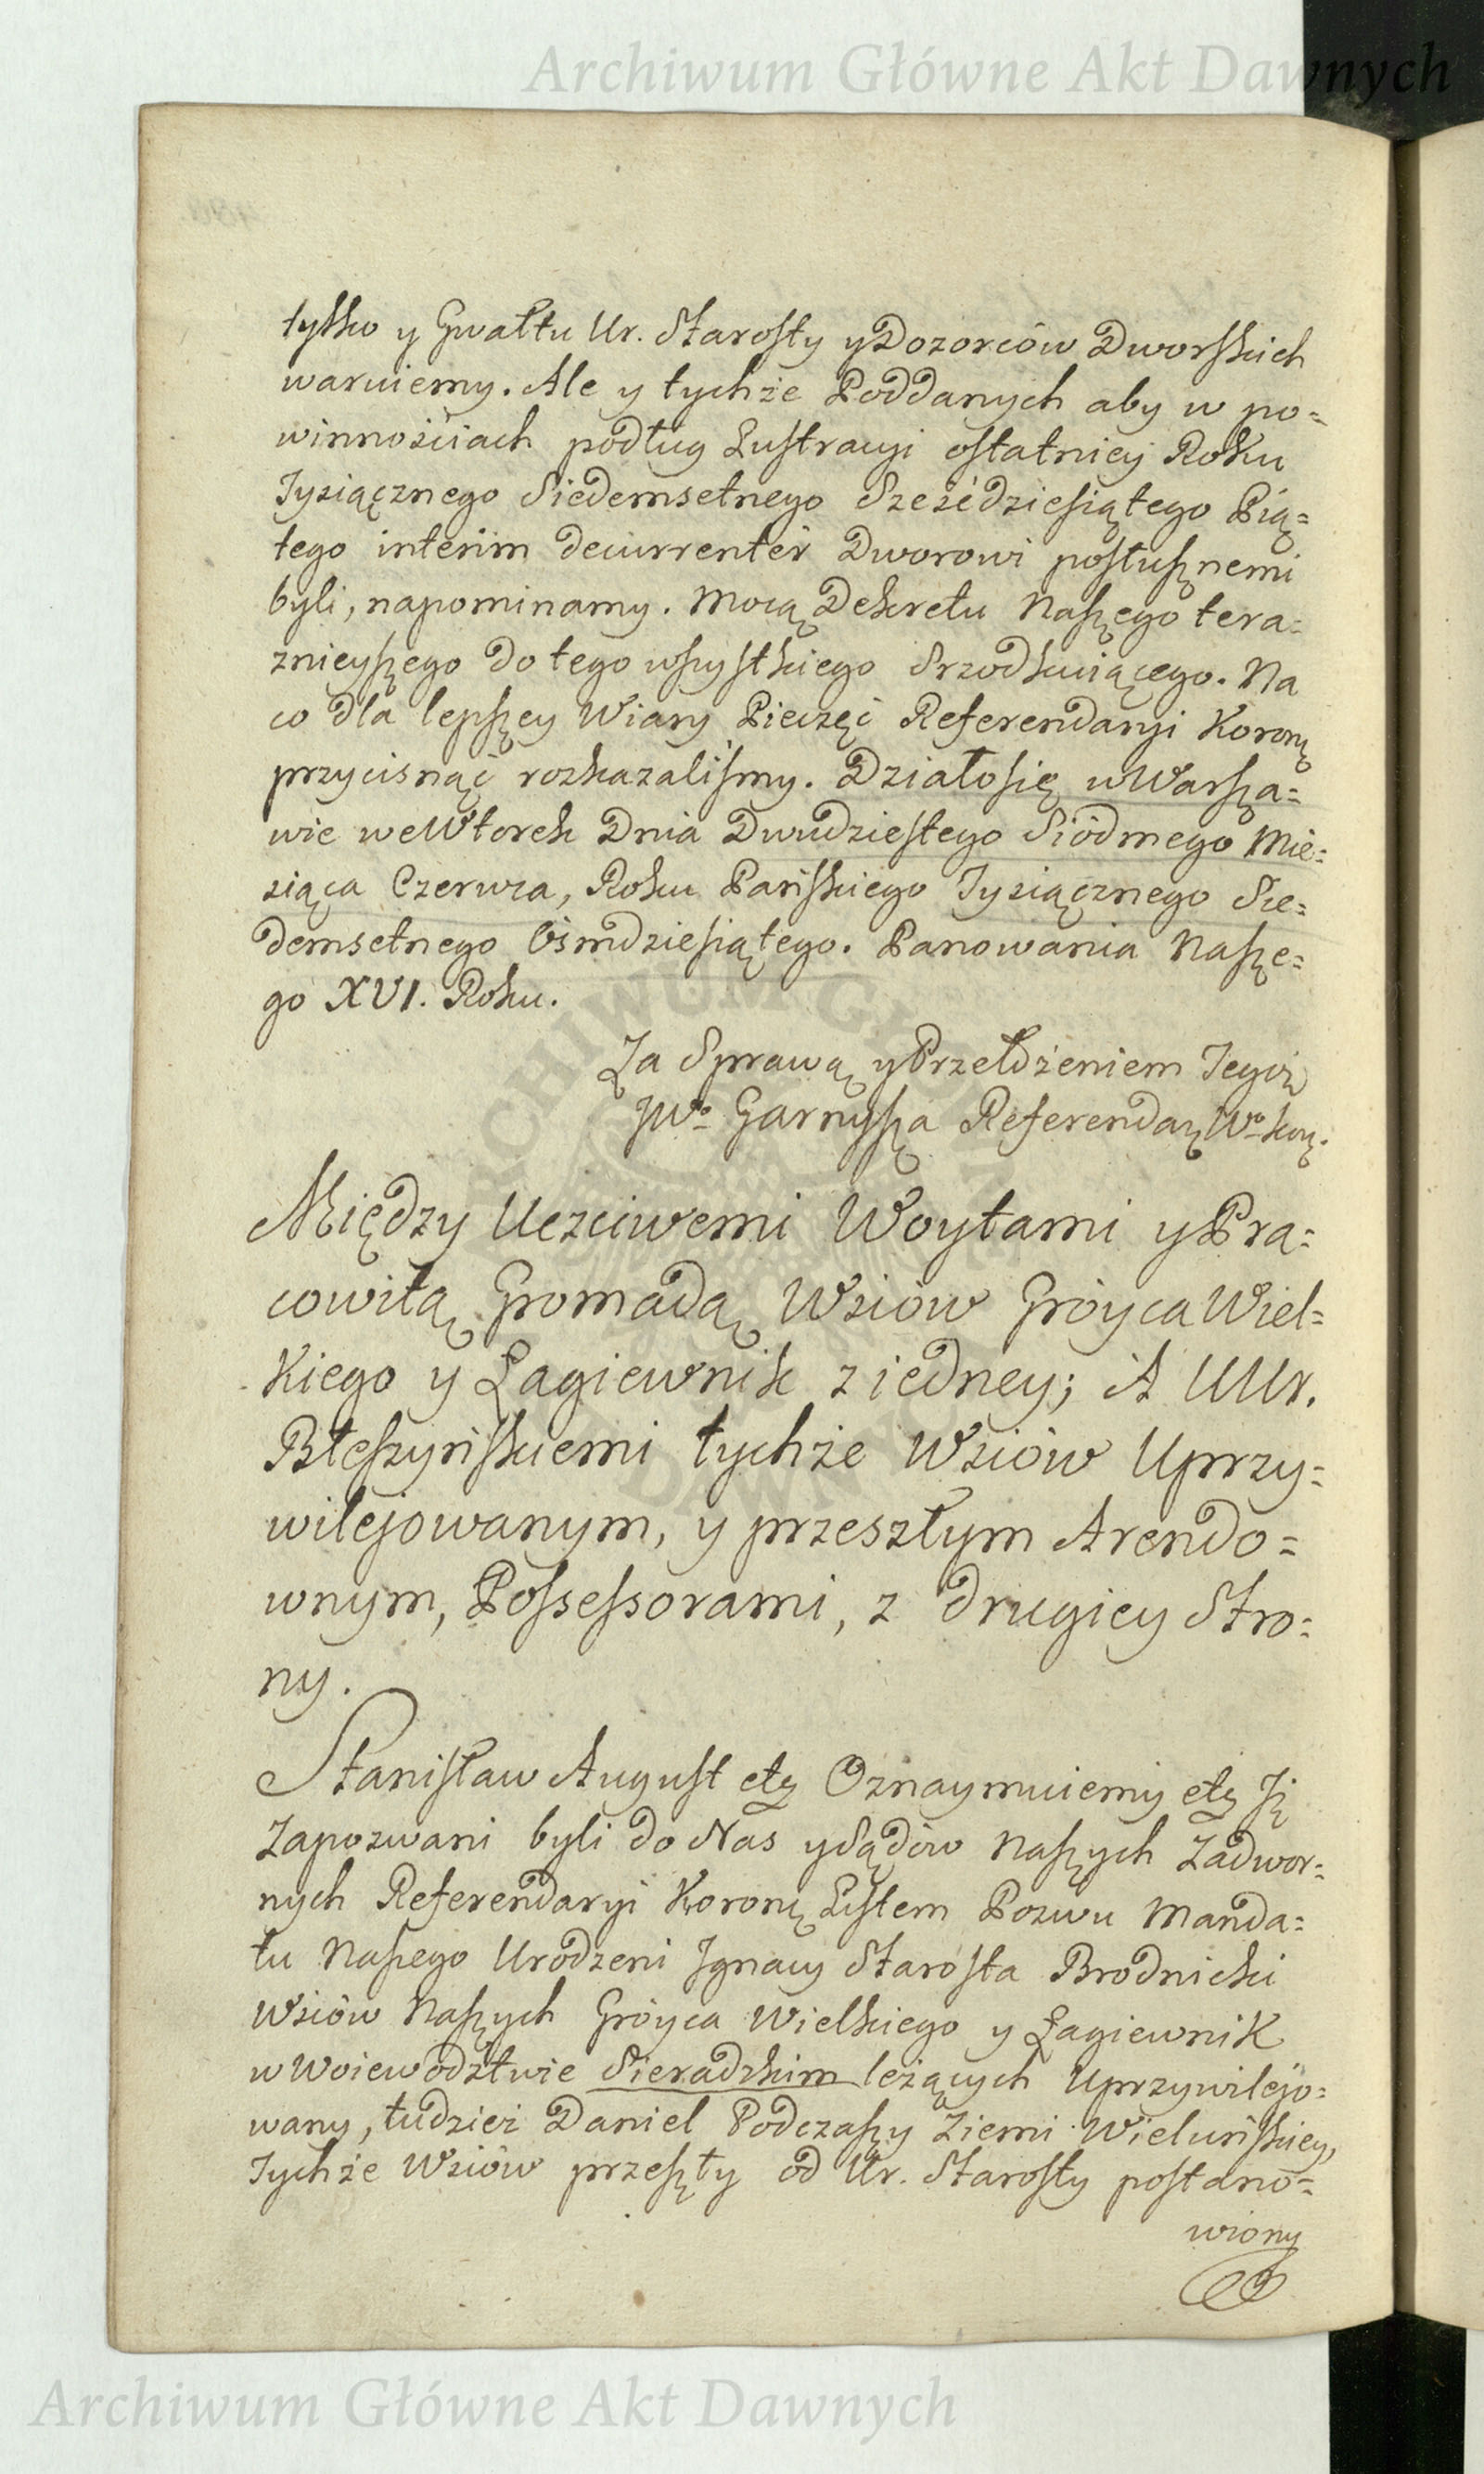 Archiwum Główne Akt Dawnych
tylko y Gwałtu Ur. Starosty y Dozorców Dworskich
waruiemy. Ale y tychże Poddanych aby w po=
winnościach podług Lustracyi ostatniey Roku
Tysiącznego Siedemsetnego Sześćdziesiątego Pią=
tego interim decurrenter Dworowi posłusznemi
byli, napominamy. Mocą Dekretu Naszego tera=
znieyszego do tego wszystkiego Srzodkuiącego. Na
co dla lepszey Wiary Pieczęć Referendaryi Koronę
przycisnąć rozkazaliśmy. Działo się w Warsza=
wie we Wtorek Dnia Dwudziestego Siódmego Mie=
siąca Czerwca, Roku Pańskiego Tysiącznego Sie=
demsetnego Ośmdziesiątego. Panowania Nasze=
go XVI. Roku.
Za Sprawą y Przełożeniem
JWo Garnysza Referendarz Wo
Między Uczciwemi Woytami y Pra=
cowitą Gromadą Wsiów Gróyca Wiel=
kiego y Łagiewnik z iedney; A UUr.
Błeszyńskiemi tychże Wsiów Uprzy=
wilejowanym, y przeszłym Arendo=
wnym, Possessorami, z drugiey Stro=
ny.
Stanisław August etc Oznaymuiemy etc Iż
Zapozwani byli do Nas y Sądów Naszych Zadwor=
nych Referendaryi Koronę Listem Pozwu Manda=
tu Naszego Urodzeni Ignacy Starosta Brodnicki
Wsiów Naszych Gróyca Wielkiego y Łagiewnik
w Woiewództwie Sieradzkim leżących Uprzywilejo=
wany, tudzież Daniel Podczaszy Ziemi Wieluńskiey,
Tychże Wsiów przeszły od Ur. Starosty postano=
wiony
Archiwum Główne Akt Dawnych